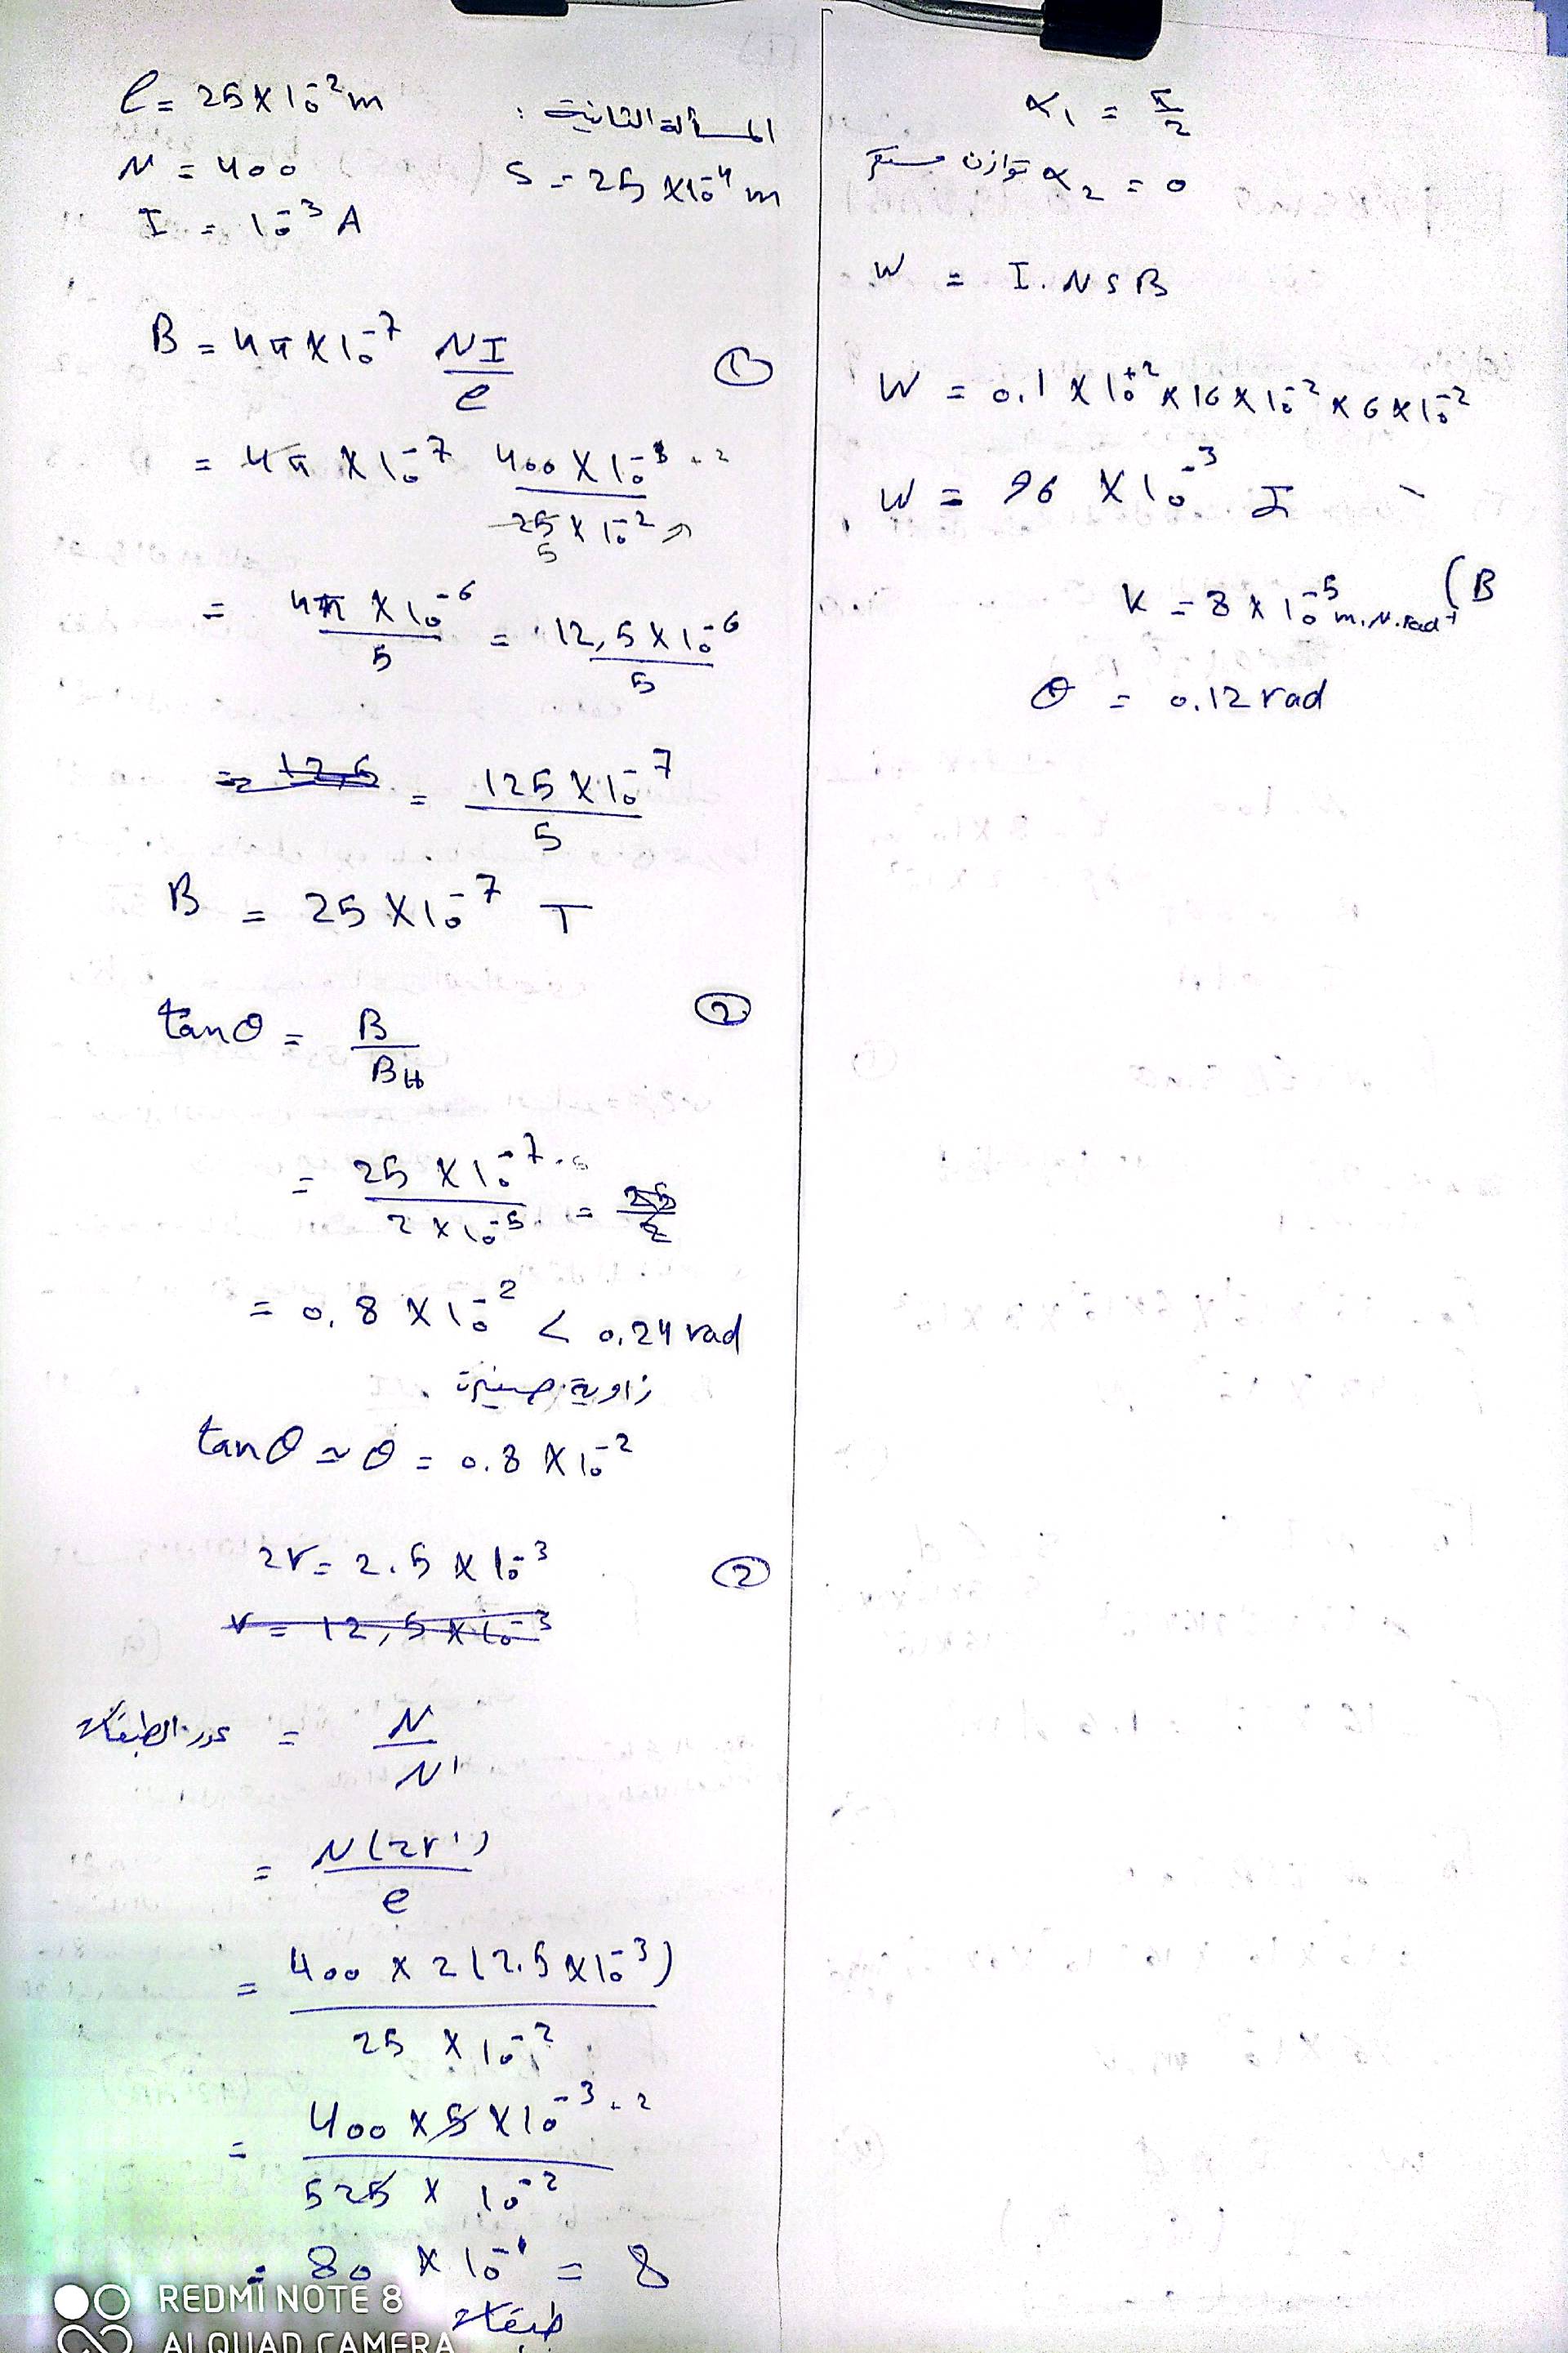 المسألة الثانية :
l = 25 × 10⁻² m
N = 400
S = 25 × 10⁻⁴ m
I = 10⁻³ A
B = 4π × 10⁻⁷ NI / l
①
= 4π × 10⁻⁷ 400 × 10⁻³⁺² / 25 × 10⁻²
5
= 4π × 10⁻⁶ / 5 = 12,5 × 10⁻⁶ / 5
= 125 × 10⁻⁷ / 5
B = 25 × 10⁻⁷ T
tanθ = B / B_H
②
= 25 × 10⁻⁷⁺⁵ / 2 × 10⁻⁵ = 25 / 2
= 0,8 × 10⁻² < 0,24 rad
زاوية صغيرة .
tanθ ≈ θ = 0.8 × 10⁻²
2r = 2.5 × 10⁻³
②
r = 12,5 × 10⁻³
عدد الطبقات = N / N'
= N(2r') / l
= 400 × 2(2.5 × 10⁻³) / 25 × 10⁻²
= 400 × 5 × 10⁻³⁺² / 5 25 × 10⁻²
= 80 × 10⁻¹ = 8
طبقات
α₁ = π / 2
α₂ = 0 توازن مستقر
W = I . N S B
W = 0,1 × 10⁺² × 16 × 10⁻² × 6 × 10⁻²
W = 96 × 10⁻³ J
K = 8 × 10⁻⁵ m.N.rad⁻¹ (B
θ = 0.12 rad
REDMI NOTE 8
AI QUAD CAMERA